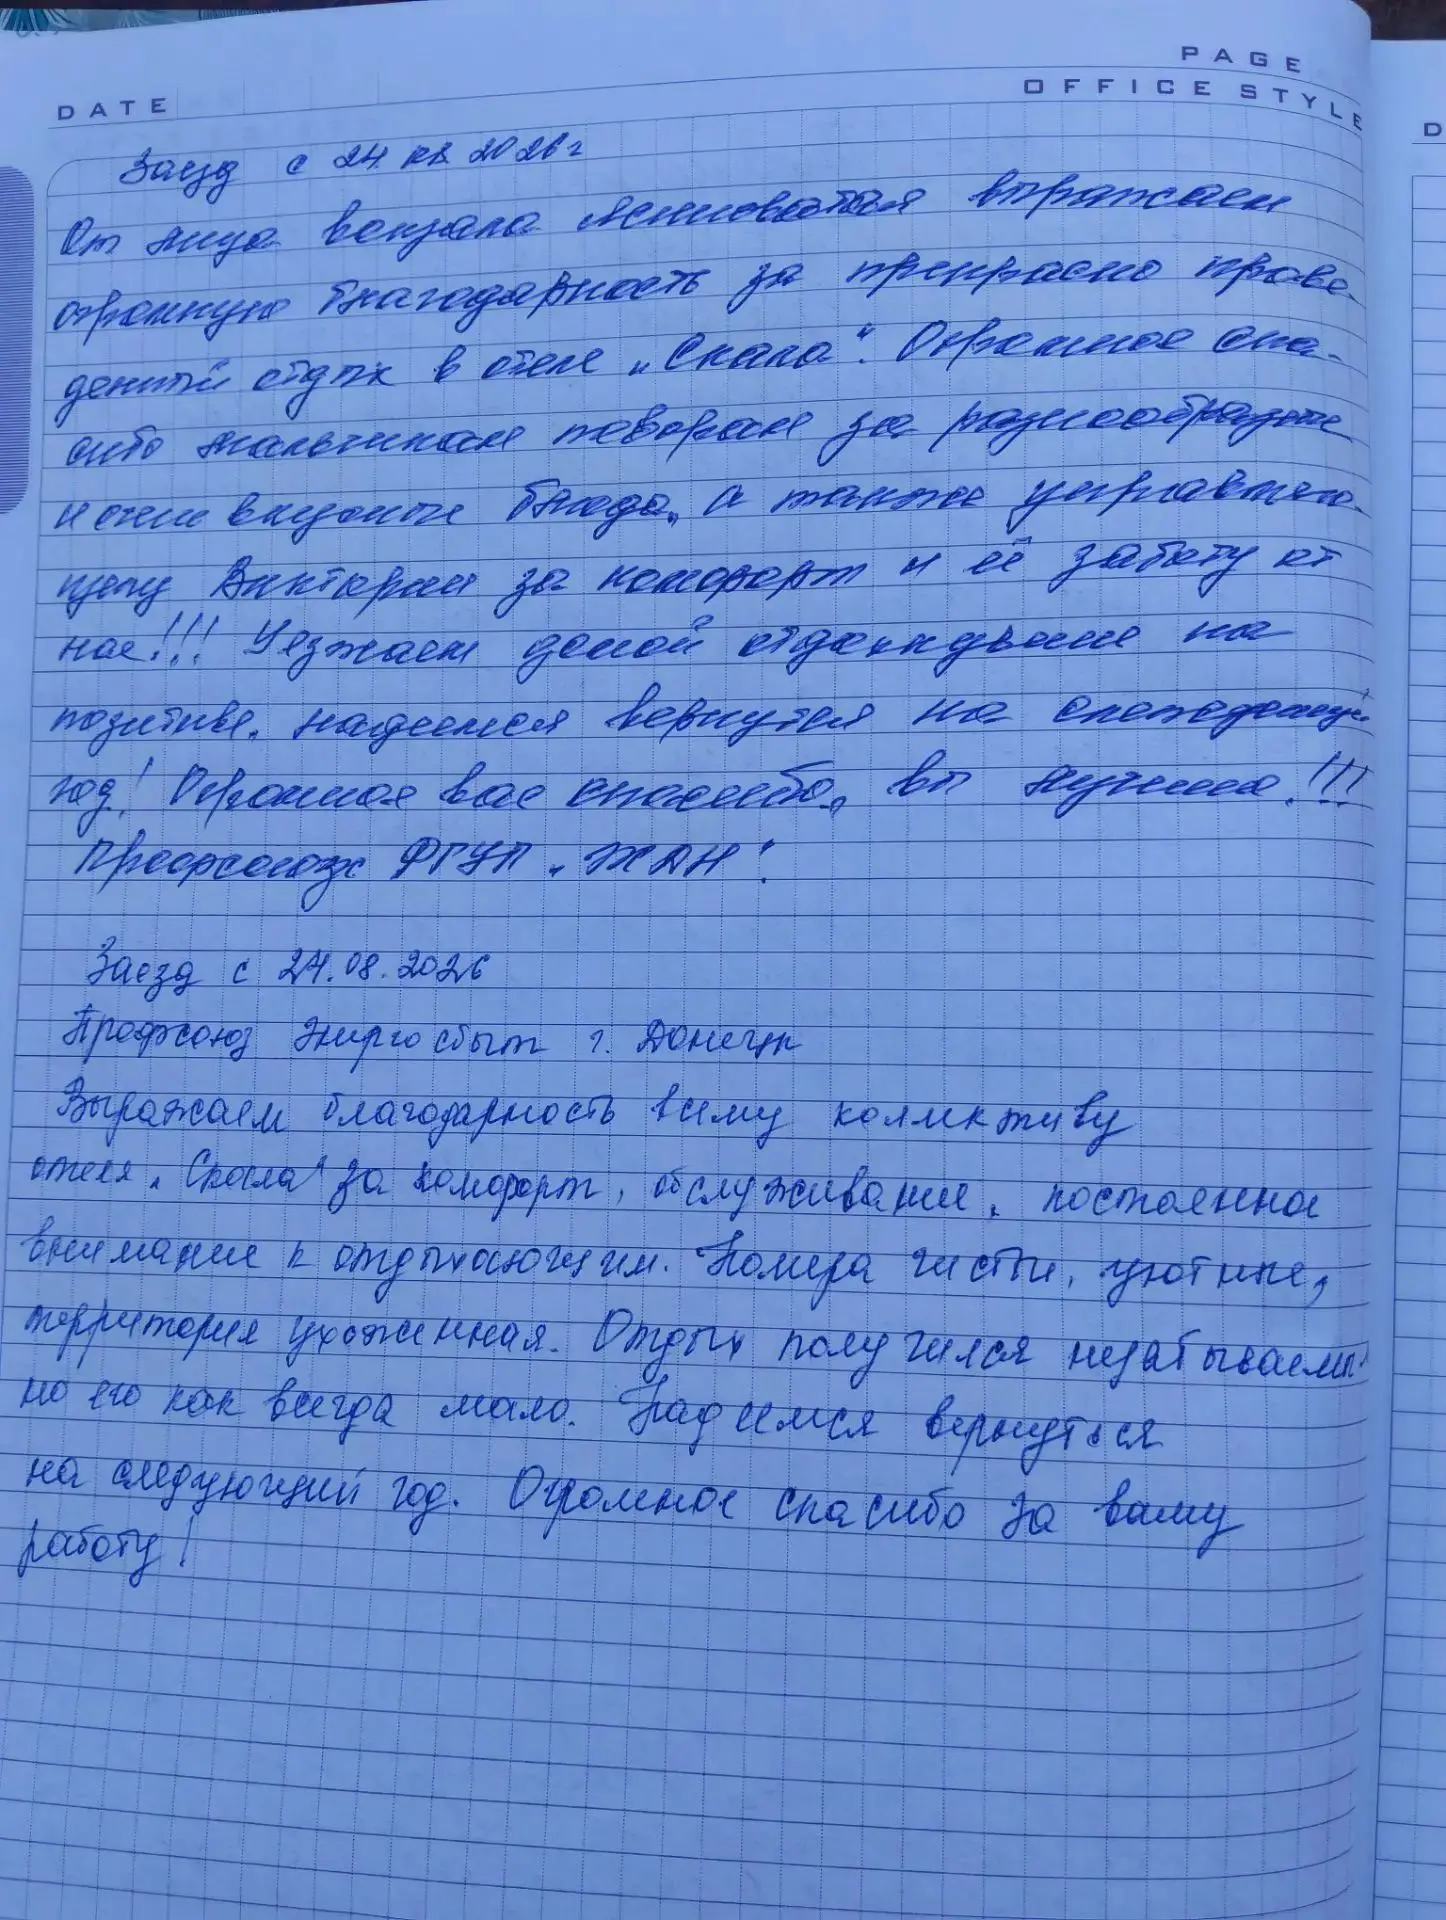 DATE
PAGE
OFFICE STYLE
Заезд с 24. 2026 г
От лица вокзала Ясиноватая выражаем
огромную благодарность за прекрасно прове-
денный отдых в отеле „Скала“. Огромное спа-
сибо мальчикам поворам за разнообразные
и очень вкусные блюда, а также управляю-
щему Виктории за комфорт и её заботу от
нас!!! Уезжаем домой отдохнувшие на
позитиве, надеемся вернутся на
год! Огромное вас спасибо, вы лучшие!!!
Профсоюз ФГУП „ЖДН“.
Заезд с 24.08.2026
Профсоюз Энергосбыт г. Донецк
Выражаем благодарность всему коллективу
отеля „Скала“ за комфорт, обслуживание, постоянное
внимание к отдыхающим. Номера чистые, уютные,
территория ухоженная. Отдых получился незабываемы
но его как всегда мало. Надеемся вернуться
на следующий год. Огромное спасибо за вашу
работу!
D